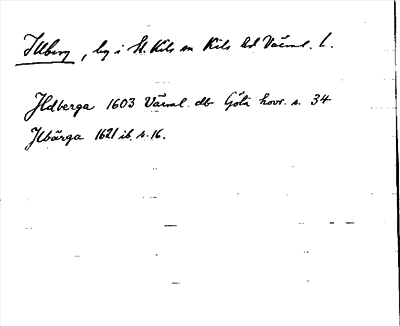 Illberg, by i St. Kils sn Kils hd Värml. l.
Illdberga 1603 Värml. db Göta hovr. s. 34
Illbärga 1621 ib. s. 16.